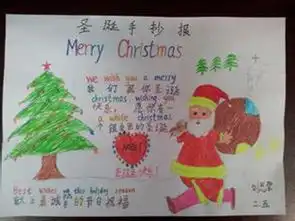 圣诞手抄报
Merry Christmas
We wish you a merry
我们祝你圣诞
christmas, wishing you
快乐, 愿你有
a white christmas
个银色的圣诞
圣诞快乐!
Best wishes
this holiday season
献上最诚挚的节日祝福
二五